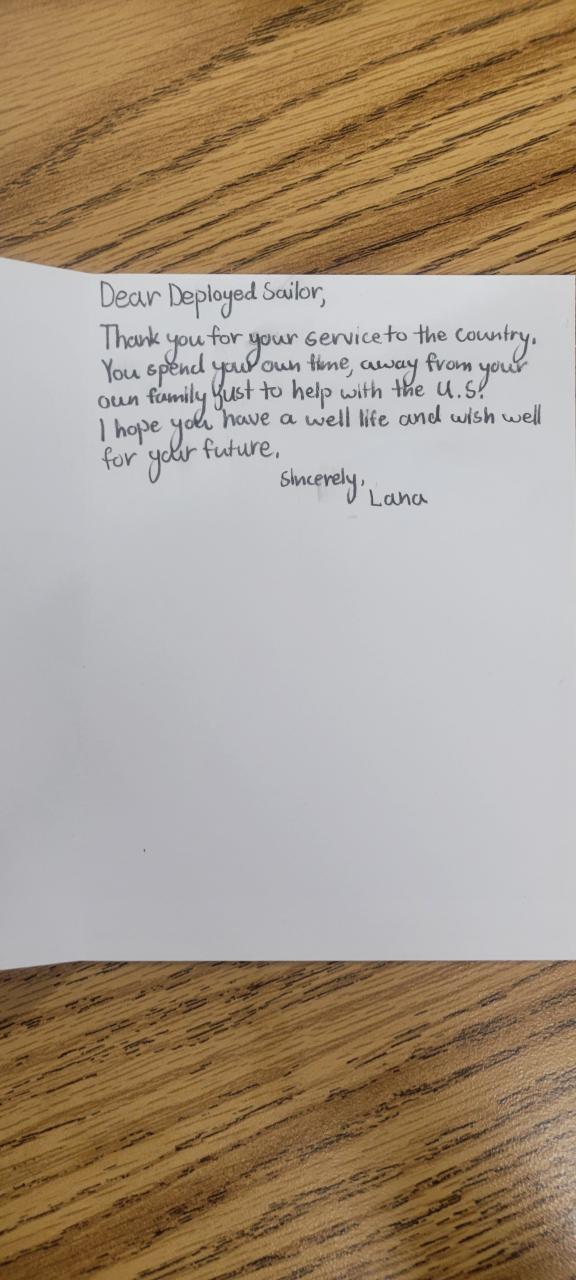 Dear Deployed Sailor,
Thank you for your service to the country.
You spend your own time, away from your
own family just to help with the U.S.
I hope you have a well life and wish well
for your future.
Sincerely,
Lana